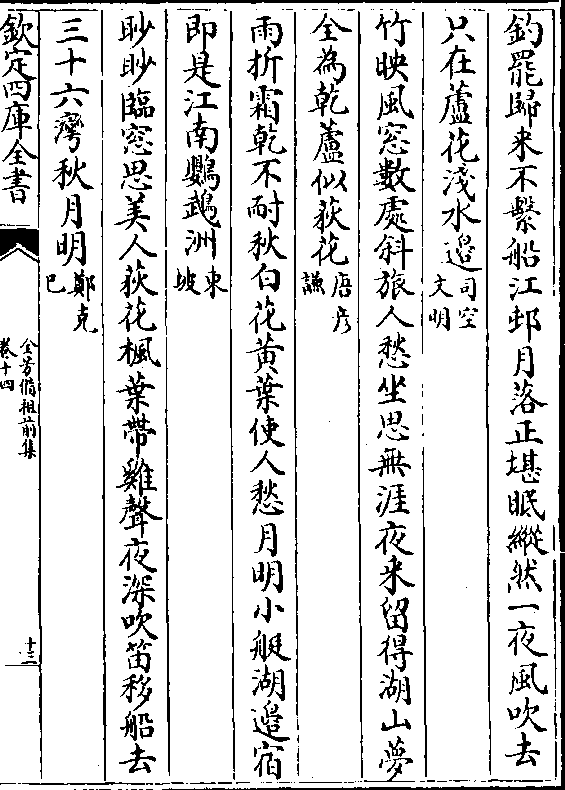 釣罷歸来不繫船江邨月落正堪眠縱然一夜風吹去
只在蘆花淺水邉司空文明
竹映風窓數處斜旅人愁坐思無涯夜来留得湖山夢
全為乾蘆似荻花唐彦謙
雨折霜乾不耐秋白花黃葉使人愁月明小艇湖邉宿
即是江南鸚鵡洲東坡
眇眇臨窓思美人荻花楓葉帶雞聲夜深吹笛移船去
三十六灣秋月明鄭克巳
欽定四庫全書
全芳備祖前集
卷十四
十三